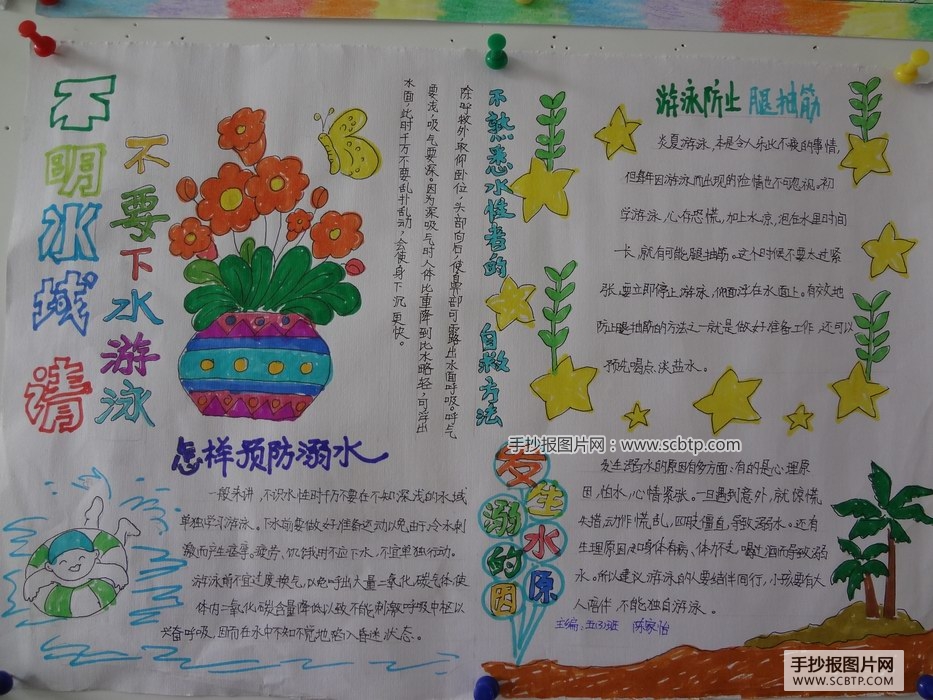 不明水域 请
不要下水游泳
不熟悉水性者的 自救方法
除呼救外，取仰卧位，头部向后，使鼻部可露出水面呼吸。呼气
要浅，吸气要深。因为深吸气时人体比重降到比水略轻，可浮出
水面，此时千万不要乱扑乱动，会使身下沉更快。
游泳防止腿抽筋
炎夏游泳，本是令人乐此不疲的事情，
但每年因游泳而出现的险情也不可忽视。初
学游泳，心存恐慌，加上水凉，泡在水里时间
一长，就有可能腿抽筋。这个时候不要太过紧
张，要立即停止游泳，仰面浮在水面上。有效地
防止腿抽筋的方法之一就是做好准备工作，还可以
预先喝点淡盐水。
手抄报图片网：www.scbtp.com
怎样预防溺水
一般来讲，不识水性时千万不要在不知深浅的水域
单独学习游泳。下水前要做好准备运动以免由于冷水刺
激而产生痉挛。疲劳、饥饿时不应下水，不宜单独行动。
游泳前不宜过度换气，以免呼出大量二氧化碳气体使
体内二氧化碳含量降低以致不能刺激呼吸中枢以
兴奋呼吸，因而在水中不知不觉地陷入昏迷状态。
发生溺水的原因
发生溺水的原因多方面：有的是心理原
因，怕水，心情紧张。一旦遇到意外，就惊慌
失措，动作慌乱，四肢僵直，导致溺水。还有
生理原因，如身体有病、体力不支，喝过酒而导致溺
水。所以建议游泳的人要结伴同行，小孩要有大
人陪伴，不能独自游泳。
主编：五(3)班 陈家怡
手抄报图片网
WWW.SCBTP.COM